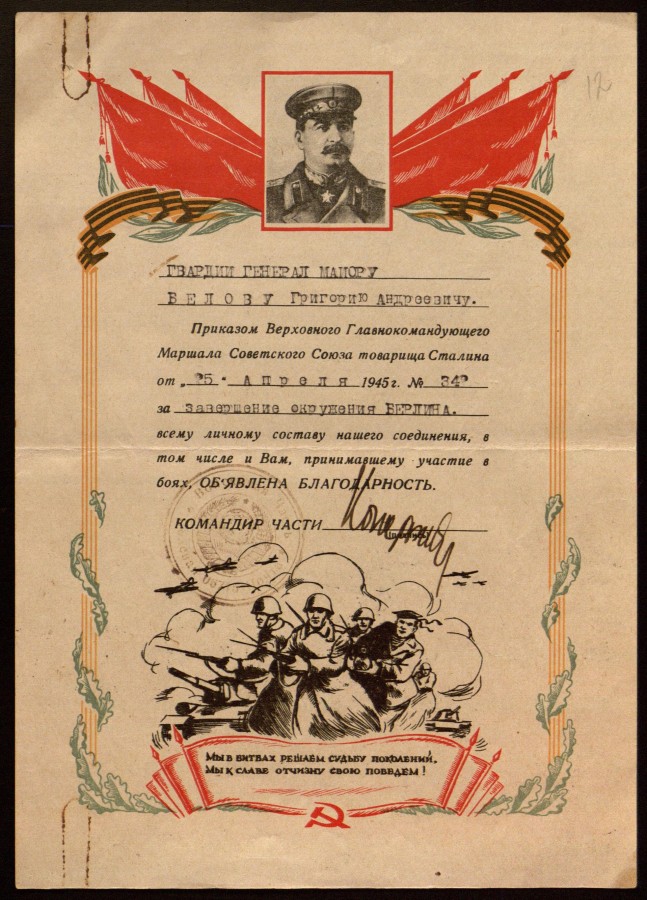 12
ГВАРДИИ ГЕНЕРАЛ МАИОРУ
БЕЛОВУ Григорию Андреевичу.
Приказом Верховного Главнокомандующего
Маршала Советского Союза товарища Сталина
от „25" Апреля 1945 г. № 342
за завершение окружения БЕРЛИНА.
всему личному составу нашего соединения, в
том числе и Вам, принимавшему участие в
боях, ОБ'ЯВЛЕНА БЛАГОДАРНОСТЬ.
КОМАНДИР ЧАСТИ
МЫ В БИТВАХ РЕШАЕМ СУДЬБУ ПОКОЛЕНИЙ,
МЫ К СЛАВЕ ОТЧИЗНУ СВОЮ ПОВЕДЕМ!